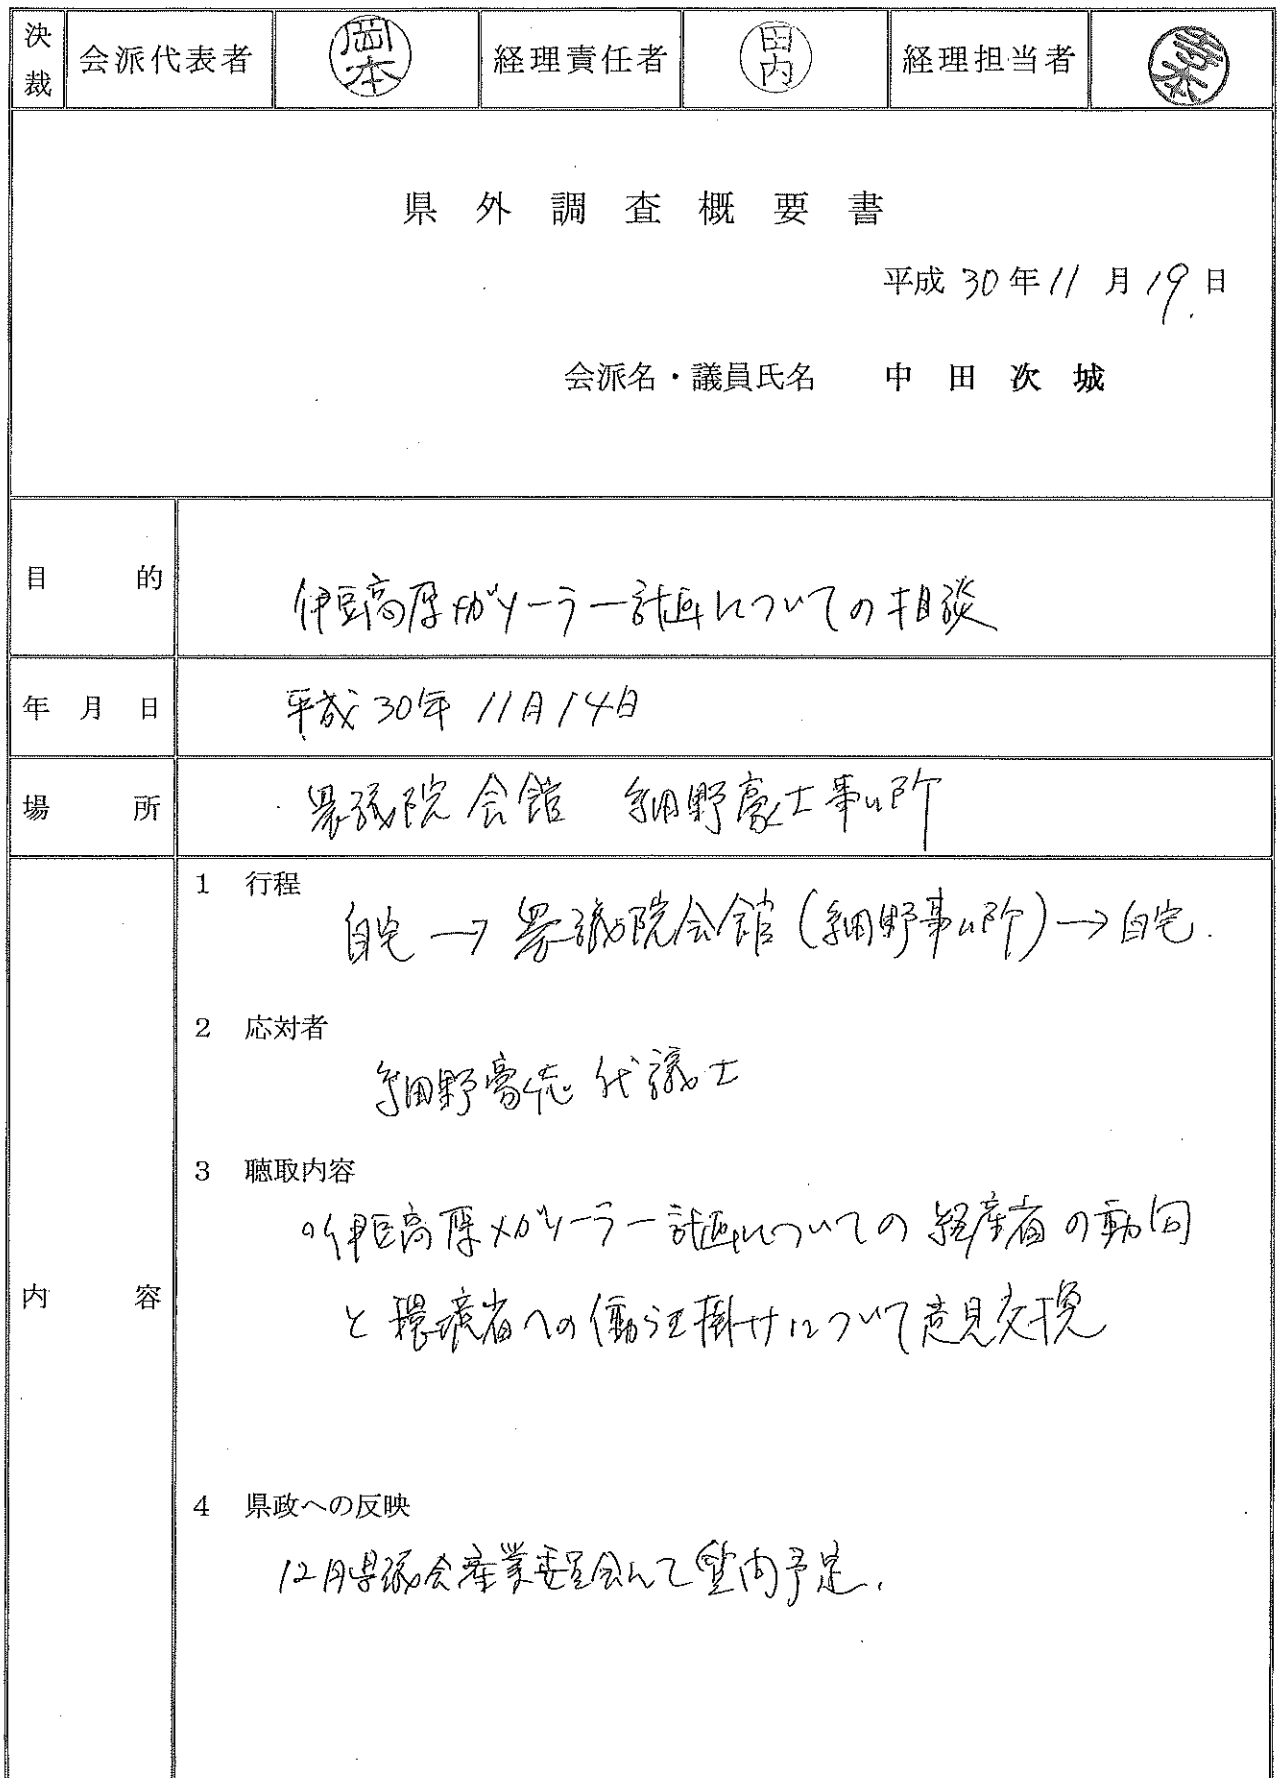 決裁 会派代表者 岡本 経理責任者 田内 経理担当者
県外調査概要書
平成30年11月19日
会派名・議員氏名 中田次城
目的 伊豆高原メガソーラー計画についての相談
年月日 平成30年11月14日
場所 衆議院会館 細野豪士事ム所
内容
1 行程
自宅→衆議院会館(細野事ム所)→自宅.
2 応対者
細野豪志代議士
3 聴取内容
◦伊豆高原メガソーラー計画についての経産省の動向
と環境省への働き掛けについて意見交換
4 県政への反映
12月県議会産業委員会にて質問予定.